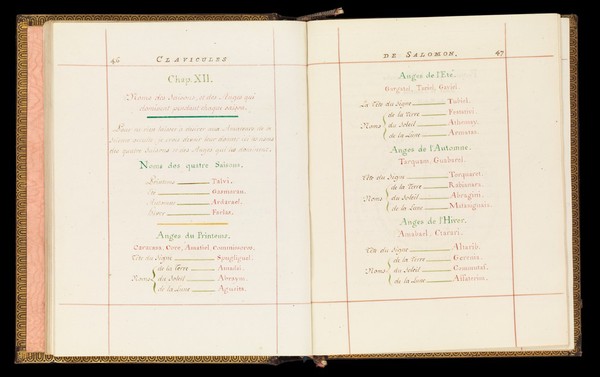 46
CLAVICULES
Chap. XII.
Noms des Saisons, et des Anges qui
dominent pendant chaque saison.
Pour ne rien laisser à désirer aux
je vous donne les noms
des quatre Saisons et des Anges qui les
Noms des quatre Saisons.
Printems Talvi.
Été Gasmaran.
Automne Ardarael.
Hiver Farlas.
Anges du Printems.
Caracasa, Core, Amatiel, Commissoros.
Tête du Signe Spugliguel.
de la Terre Amadai.
Noms du Soleil Abraym.
de la Lune Agusita.
DE SALOMON.
47
Anges de l'Été.
Gargatel, Tariel, Gaviel.
La Tête du Signe Tubiel.
de la Terre Festatui.
Noms du Soleil Athemay.
de la Lune Armatas.
Anges de l'Automne.
Tarquam, Guabarel.
Tête du Signe Torquaret.
de la Terre Rabianara.
Noms du Soleil Abragini.
de la Lune Matasignais.
Anges de l'Hiver.
Amabael, Ctarari.
Tête du Signe Altarib.
de la Terre Gerenia.
Noms du Soleil Commutaf.
de la Lune Affaterim.